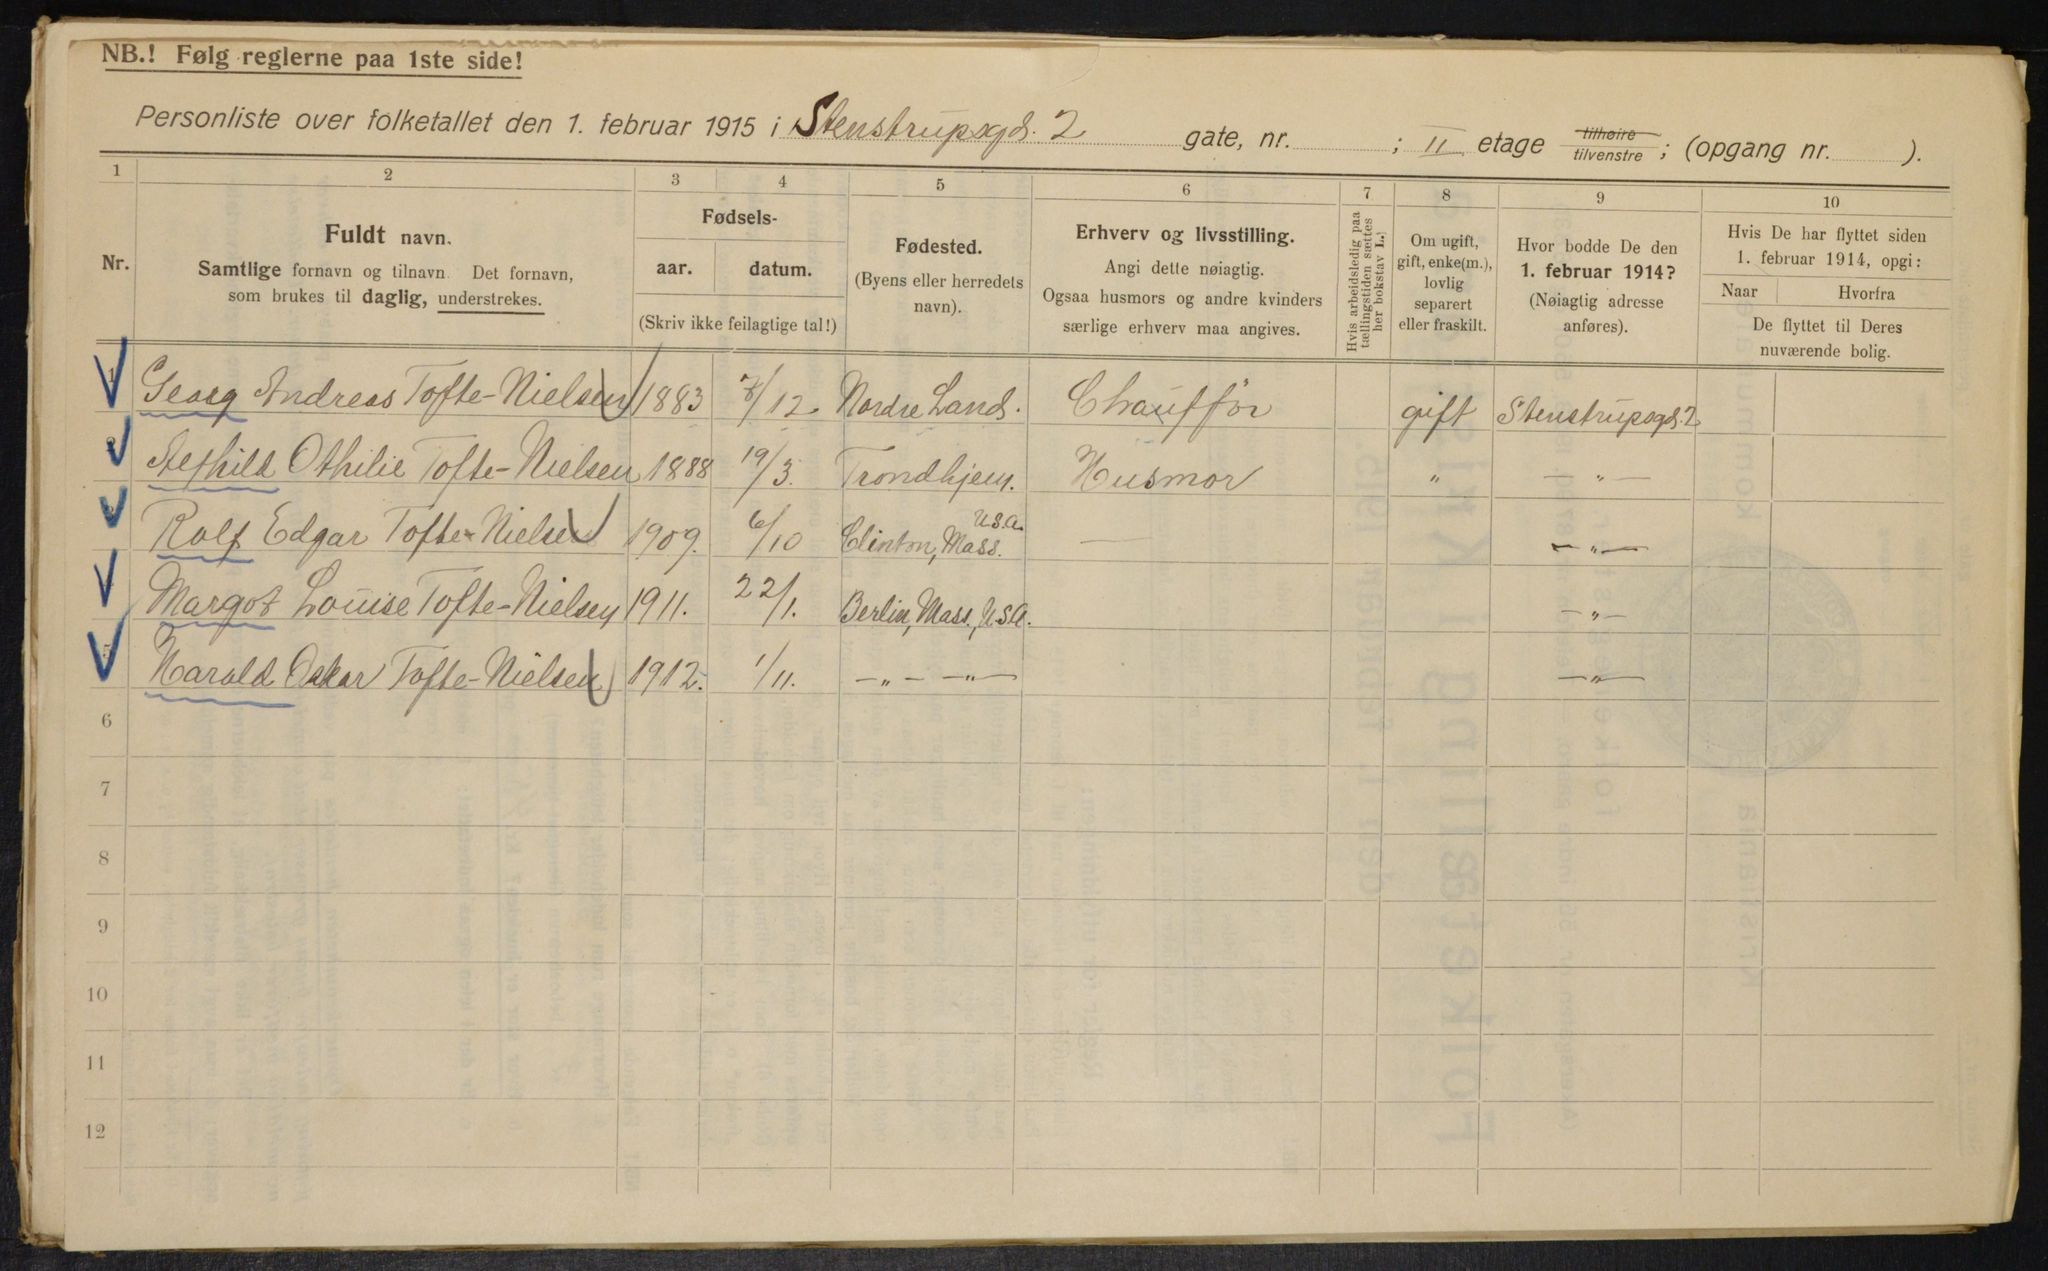 NB.! Følg reglerne paa 1ste side!
Personliste over folketallet den 1. februar 1915 i Stenstrupsgd. 2 gate, nr. ; II etage tilhøire tilvenstre ; (opgang nr. ).
1 2 3 4 5 6 7 8 9 10
Nr.
Fuldt navn.
Samtlige fornavn og tilnavn. Det fornavn,
som brukes til daglig, understrekes.
Fødsels-
aar. datum.
(Skriv ikke feilagtige tal!)
Fødested.
(Byens eller herredets
navn).
Erhverv og livsstilling.
Angi dette nøiagtig.
Ogsaa husmors og andre kvinders
særlige erhverv maa angives.
Hvis arbeidsledig paa
tællingstiden sættes
her bokstav L.
Om ugift,
gift, enke(m.),
lovlig
separert
eller fraskilt.
Hvor bodde De den
1. februar 1914?
(Nøiagtig adresse
anføres).
Hvis De har flyttet siden
1. februar 1914, opgi:
Naar Hvorfra
De flyttet til Deres
nuværende bolig.
1 Georg Andreas Tofte-Nielsen 1883 /12 Nordre Land. Chaufför gift Stenstrupsgd. 2
Othilie Tofte-Nielsen 1888 19/3. Trondhjem. Husmor " — " —
Rolf Edgar Tofte-Nielsen 1909. 6/10 Clinton, Mass. U.S.A. — — " —
Margot Louise Tofte-Nielsen 1911. 22/1. Berlin, Mass., U.S.A. — " —
Harald Oskar Tofte-Nielsen 1912. 1/11. — " — — " — — " —
6
7
8
9
10
11
12